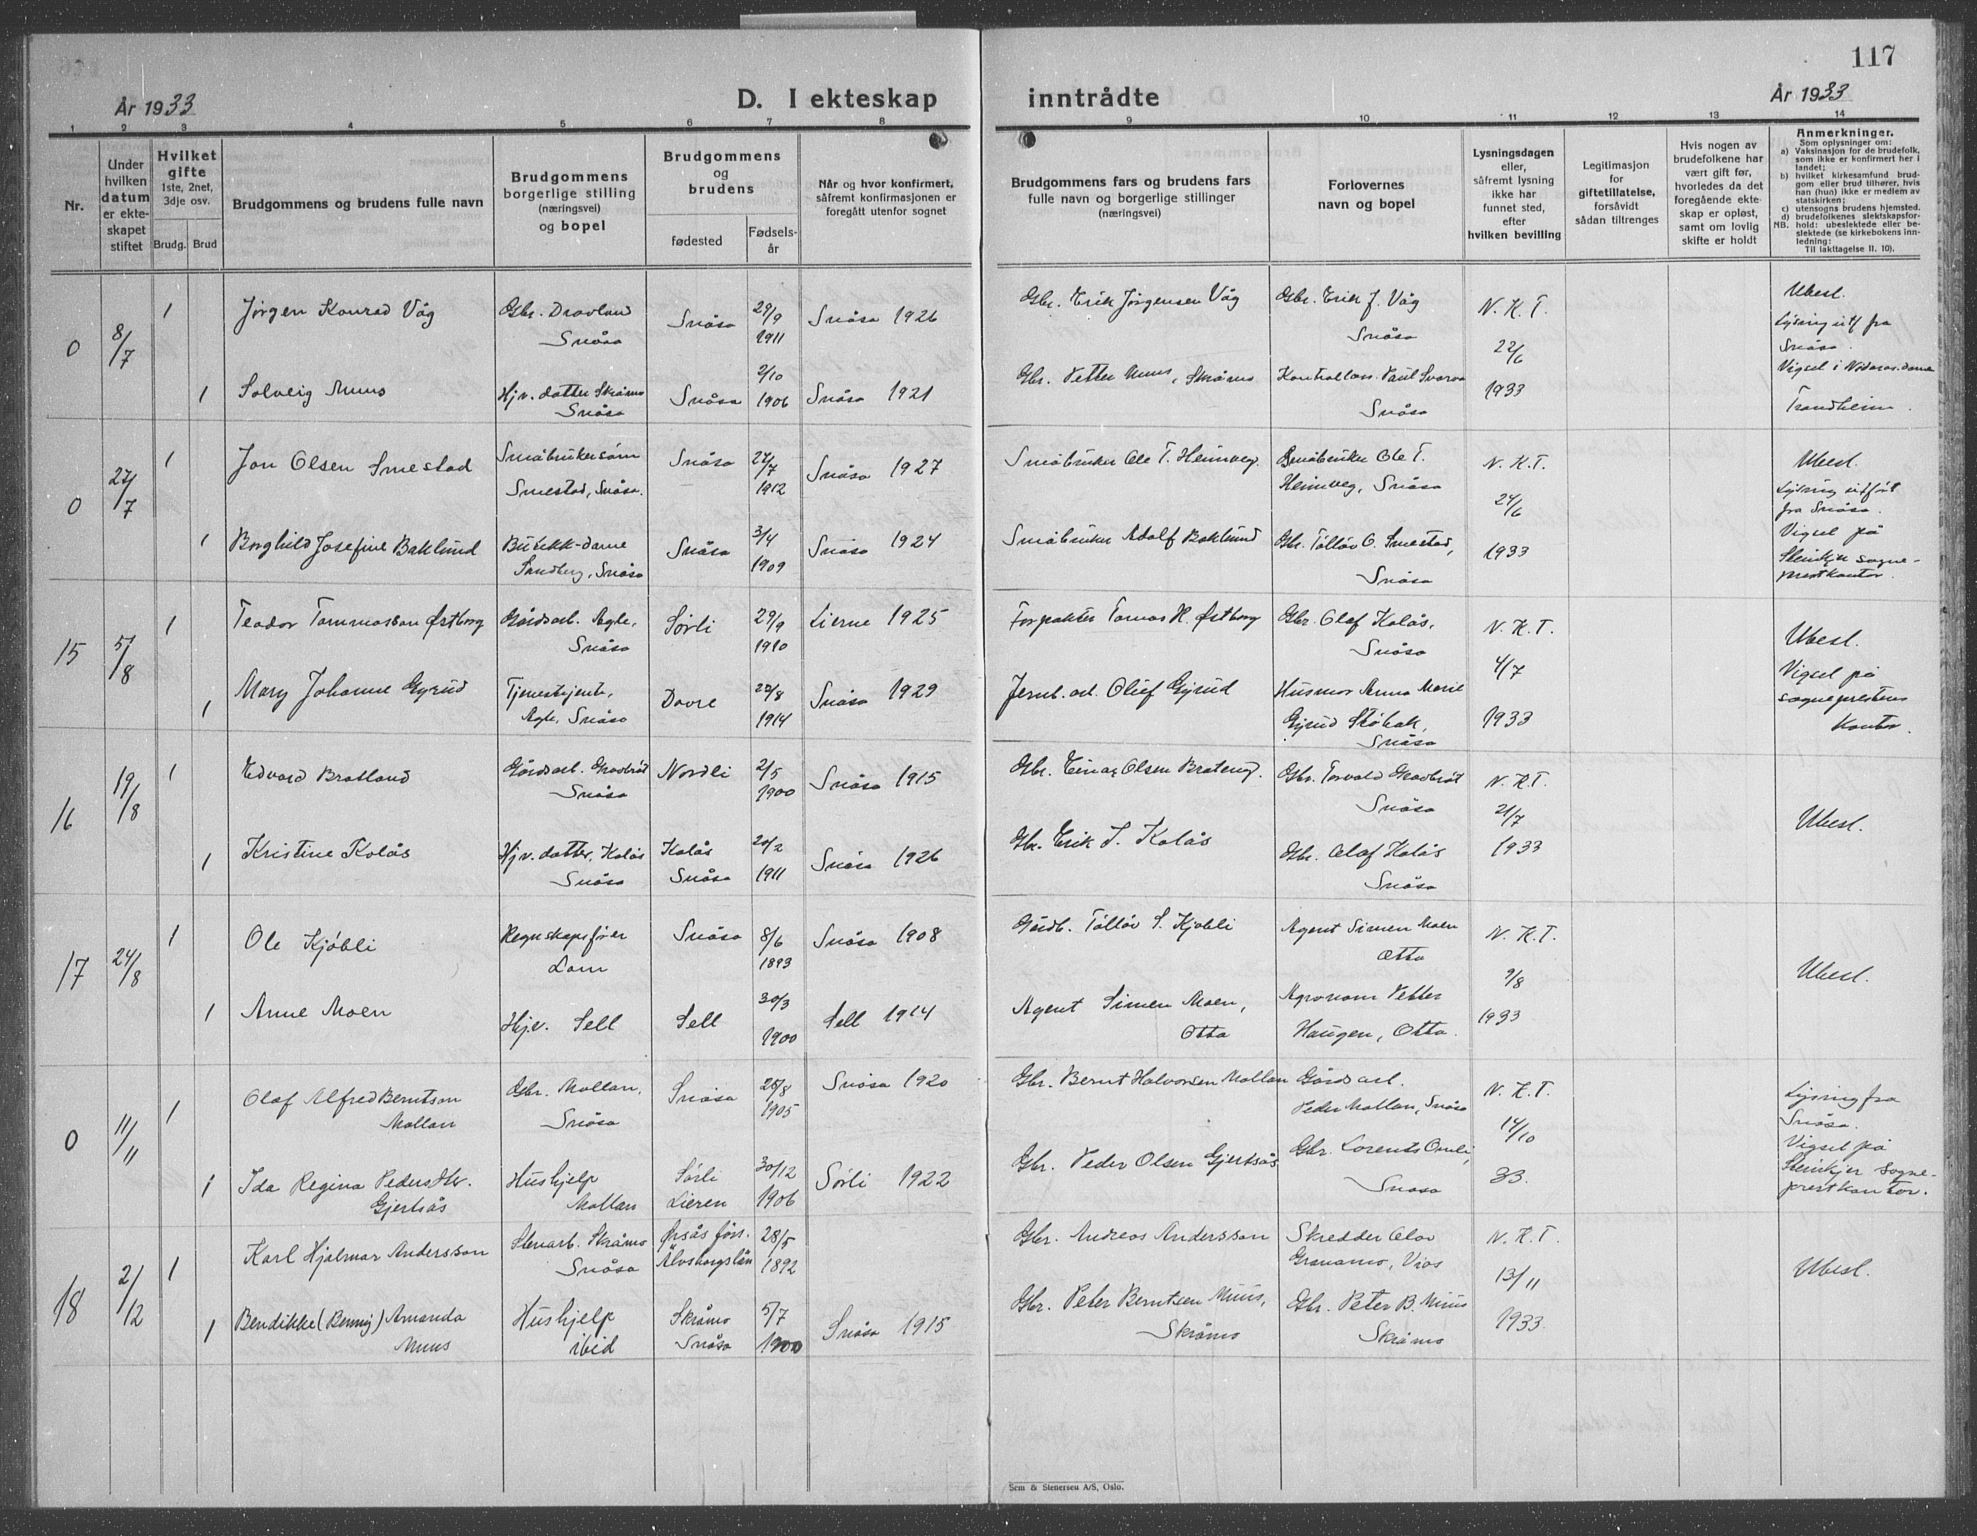 117
År 1933
D. I ekteskap inntrådte
År 1933
1 2 3 4 5 6 7 8 9 10 11 12 13 14
Nr.
Under hvilken datum er ekteskapet stiftet
Hvilket gifte
1ste, 2net, 3dje osv.
Brudg. Brud
Brudgommens og brudens fulle navn
Brudgommens borgerlige stilling (næringsvei) og bopel
Brudgommens og brudens
fødested
Fødselsår
Når og hvor konfirmert, såfremt konfirmasjonen er foregått utenfor sognet
Brudgommens fars og brudens fars fulle navn og borgerlige stillinger (næringsvei)
Forlovernes navn og bopel
Lysningsdagen eller, såfremt lysning ikke har funnet sted, efter hvilken bevilling
Legitimasjon for giftetillatelse, forsåvidt sådan tiltrenges
Hvis nogen av brudefolkene har vært gift før, hvorledes da det foregående ekteskap er opløst, samt om lovlig skifte er holdt
Anmerkninger.
Som oplysninger om:
a) Vaksinasjon for de brudefolk, som ikke er konfirmert her i landet;
b) hvilket kirkesamfund brudgom eller brud tilhører, hvis han (hun) ikke er medlem av statskirken;
c) utensogns brudens hjemsted.
d) brudefolkenes slektskapsforhold: ubeslektede eller beslektede (se kirkebokens innledning:
NB. Til iakttagelse II. 10).
0 8/7 1 Jørgen Konrad Våg Gbr. Dravland Snåsa Snåsa 29/9 1911 Snåsa 1926 Gbr. Erik Jørgensen Våg Gbr. Erik J. Våg Snåsa N. K. T. 22/6 1933 Ubesl. Lysning utf fra Snåsa. Vigsel i Nidaros dome Trondheim.
1 Solveig Muus Hjv. datter Skråmo Snåsa Snåsa 2/10 1906 Snåsa 1921 Gbr. Petter Muus, Skråmo Paul Snåsa
0 27/7 1 Jon Olsen Smestad Småbrukersønn Smestad, Snåsa. Snåsa 27/7 1912 Snåsa 1927 Småbruker Ole T. Heimveg. Småbruker Ole T. Heimveg, Snåsa N. K. T. 24/6 1933 Ubesl. Lysning utført fra Snåsa. Vigsel på Steinkjer sogneprestkontor.
1 Borghild Josefine Baklund Butikk-dame Sandberg, Snåsa Snåsa 3/4 1909 Snåsa 1924 Småbruker Adolf Baklund Gbr. Tølløv O. Smestad, Snåsa
15 5/8 1 Teodor Tommasson Østborg Gårdsarb. Agle, Snåsa Sørli 29/9 1910 Lierne 1925 Forpakter Tomas H. Østborg Gbr. Olaf Kolås, Snåsa N. K. T. 4/7 1933 Ubesl. Vigsel på sogneprestens kontor.
1 Mary Johanne Gjerud Tjenestejente, Agle, Snåsa Dovre 1914 Snåsa 1929 Jernb. arb. Oluf Gjerud Husmor Anna Marie Gjerud Snåsa
16 19/8 1 Edvard Bratland Gårdsarb. Snåsa Nordli 2/5 1900 Snåsa 1915 Gbr. Einar Olsen Brateng. Gbr. Torvald Snåsa N. K. T. 21/7 1933 Ubesl.
1 Kristine Kolås Hjv. datter, Kolås Snåsa Kolås Snåsa 20/2 1911 Snåsa 1926 Gbr. Erik J. Kolås Gbr. Olaf Kolås Snåsa
17 24/8 1 Ole Kjøbli Regnskapsfører Lom Snåsa 8/6 1893 Snåsa 1908 Gårdb. Tølløv S. Kjøbli Agent Simen Moen Otta N. K. T. 9/8 1933 Ubesl.
1 Anne Moen Hjv. Sell Sell 30/3 1900 Sell 1914 Agent Simen Moen, Otta Agronom Petter Haugen, Otta.
0 11/11 1 Olaf Alfred Berntson Mollan Gbr. Mollan, Snåsa Snåsa 25/8 1905 Snåsa 1920 Gbr. Bernt Halvorsen Mollan Gårdsarb. Peder Mollan, Snåsa N. K. T. 14/10 33. Lysning fra Snåsa. Vigsel på Steinkjer sogneprestkontor.
1 Ida Regina Pedersdtr. Gjertsås Hushjelp Mollan Sørli Lieren 30/12 1906 Sørli 1922 Gbr. Peder Olsen Gjertsås Gbr. Lorents Omli, Snåsa
18 2/12 1 Karl Hjalmar Andersson Stenarb. Skråmo Snåsa Ørsås førs. Älvsborgslän 28/5 1892 Gbr. Andreas Andersson Skredder Olav Granamo, Vios N. K. T. 13/11 1933 Ubesl.
1 Bendikke (Benny) Amanda Muus Hushjelp ibid Skråmo Snåsa 5/7 1900 Snåsa 1915 Gbr. Peter Berntsen Muus, Skråmo Gbr. Peter B. Muus Skråmo
Sem & Stenersen A/S, Oslo.